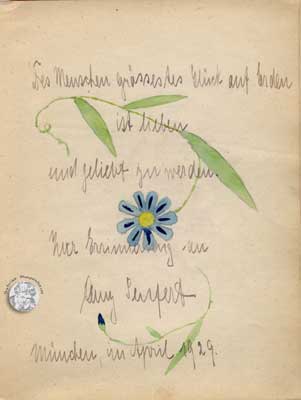 Des Menschen grössestes Glück auf Erden
ist lieben
und geliebt zu werden.
Zur Erinnerung an
Seufert
München, im April 1929.